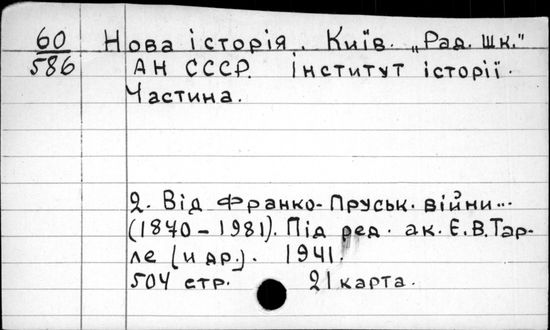 60 Нова історія. Київ. „Рад. шк."
586 АН СССР. Інститут історії.
Частина.
2. Від Франко-Пруськ. війни...
(1870-1981). Під ред. ак. Е.В.Тар-
ле [и др.]. 1941.
504 стр. 21 карта.